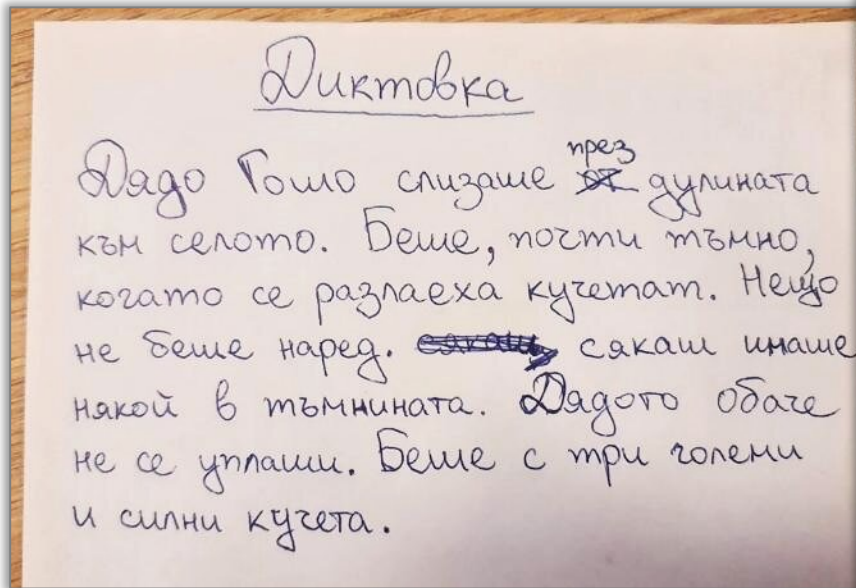 Диктовка
Дядо Гошо слизаше през дулината
към селото. Беше, почти тъмно,
когато се разлаеха кучетат. Нещо
не беше наред. сякаш имаше
някой в тъмнината. Дядото обаче
не се уплаши. Беше с три големи
и силни кучета.